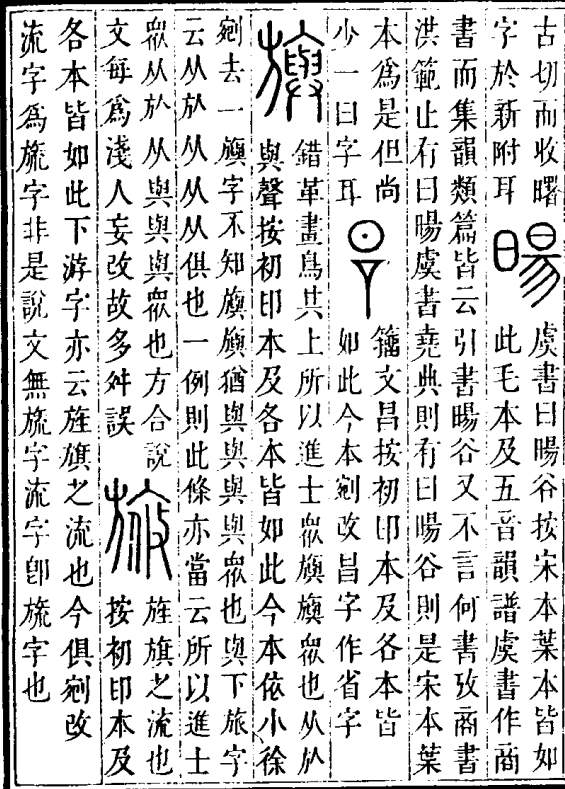 古切而收曙
字於新附耳
暘
虞書曰暘谷按宋本葉本皆如
此毛本及五音韻譜虞書作商
書而集韻類篇皆云引書暘谷又不言何書攷商書
洪範止有曰暘虞書堯典則有曰暘谷則是宋本葉
本爲是但尚
少一曰字耳
籒文昌按初印本及各本皆
如此今本剜改昌字作省字
旟
錯革畫鳥其上所以進士衆旟旟衆也从㫃
與聲按初印本及各本皆如此今本依小徐
剜去一旟字不知旟旟猶與與與與衆也與下旅字
云从㫃从从从俱也一例則此條亦當云所以進士
衆从㫃从與與與衆也方合說
文每爲淺人妄改故多舛誤
旌旗之流也
按初印本及
各本皆如此下游字亦云旌旗之流也今俱剜改
流字爲旒字非是說文無旒字流字卽旒字也